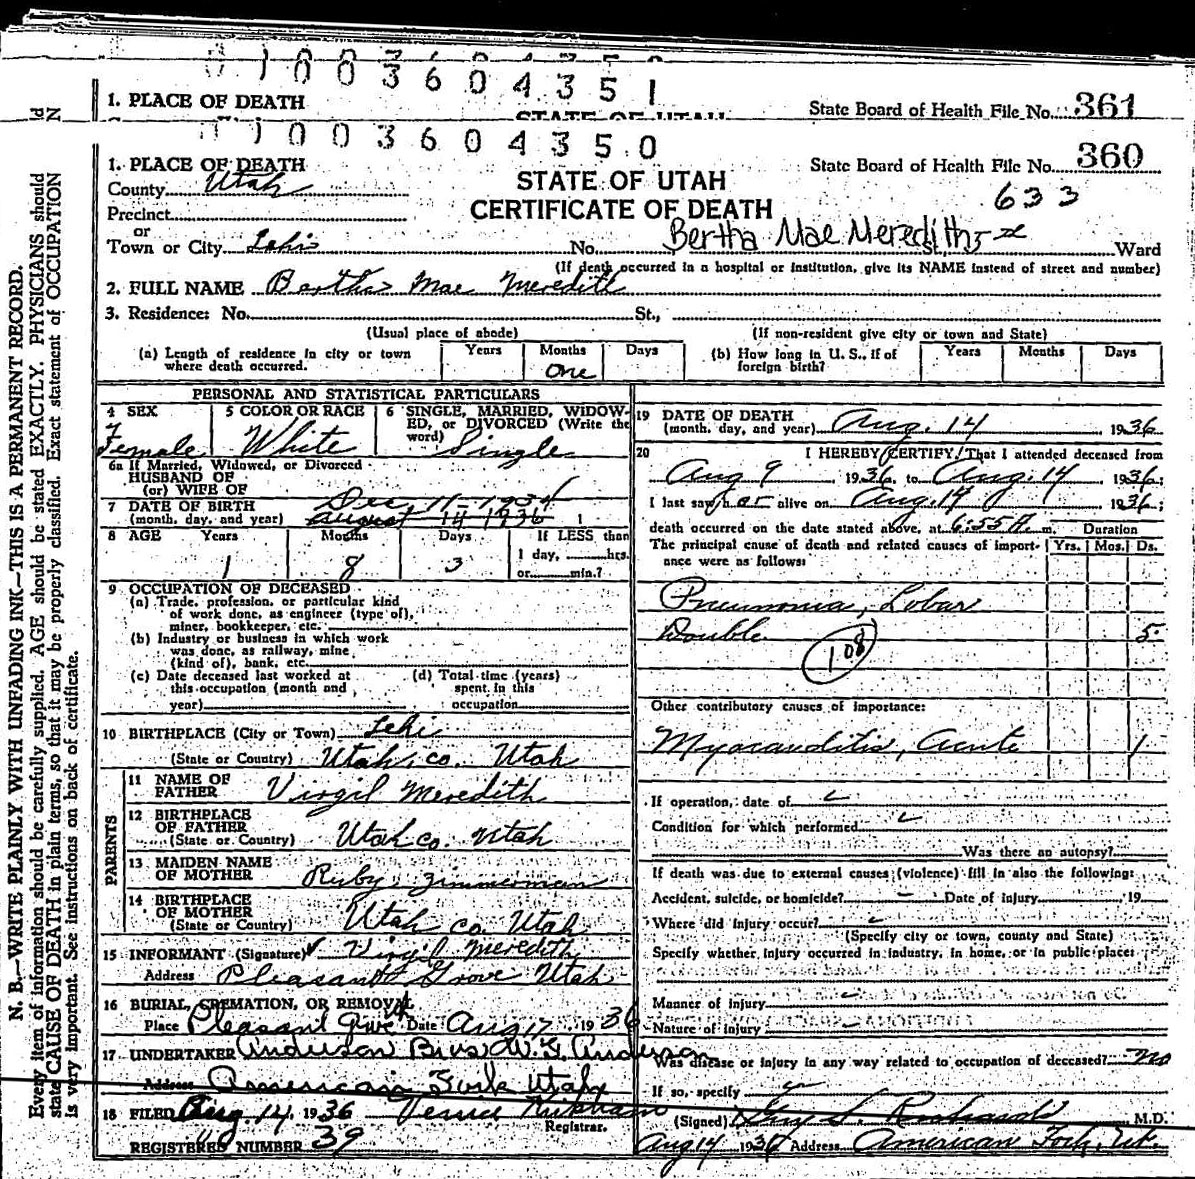 0 1 0 0 3 6 0 4 3 5 1
1. PLACE OF DEATH
STATE OF UTAH
State Board of Health File No. 361
0 1 0 0 3 6 0 4 3 5 0
1. PLACE OF DEATH
State Board of Health File No. 360
County Utah
STATE OF UTAH
633
Precinct
CERTIFICATE OF DEATH
or
Town or City Lehi No. Bertha Mae Meredith Ward
(If death occurred in a hospital or institution, give its NAME instead of street and number)
2. FULL NAME Bertha Mae Meredith
3. Residence: No. St.,
(Usual place of abode) (If non-resident give city or town and State)
(a) Length of residence in city or town where death occurred. Years Months One Days
(b) How long in U. S., if of foreign birth? Years Months Days
PERSONAL AND STATISTICAL PARTICULARS
4 SEX Female
5 COLOR OR RACE White
6 SINGLE, MARRIED, WIDOWED, or DIVORCED (Write the word) Single
6a If Married, Widowed, or Divorced
HUSBAND OF
(or) WIFE OF
7 DATE OF BIRTH Dec 11 - 1934
(month, day, and year) August 14 1936
8 AGE Years 1 Months 8 Days 3
If LESS than
1 day, hrs.
or min.?
9 OCCUPATION OF DECEASED
(a) Trade, profession, or particular kind
of work done, as engineer (type of),
miner, bookkeeper, etc.
(b) Industry or business in which work
was done, as railway, mine
(kind of), bank, etc.
(c) Date deceased last worked at
this occupation (month and
year)
(d) Total time (years)
spent in this
occupation
10 BIRTHPLACE (City or Town) Lehi
(State or Country) Utah, co. Utah
PARENTS
11 NAME OF FATHER Virgil Meredith
12 BIRTHPLACE OF FATHER
(State or Country) Utah co. Utah
13 MAIDEN NAME OF MOTHER Ruby Zimmerman
14 BIRTHPLACE OF MOTHER
(State or Country) Utah co. Utah
15 INFORMANT (Signature) Virgil Meredith
Address Pleasant Grove Utah
16 BURIAL, CREMATION, OR REMOVAL
Place Pleasant Grove Date Aug 17 1936
17 UNDERTAKER Anderson Bros W. G. Anderson
Address American Fork Utah
18 FILED Aug 14, 1936
Registrar.
REGISTERED NUMBER 39
19 DATE OF DEATH
(month, day, and year) Aug. 14 1936
20 I HEREBY CERTIFY, That I attended deceased from
Aug 9, 1936, to Aug. 14 1936;
I last saw her alive on Aug. 14 1936;
death occurred on the date stated above, at 6:55 A m.
The principal cause of death and related causes of importance were as follows:
Duration
Yrs. Mos. Ds.
Pneumonia, Lobar
Double 5.
108
Other contributory causes of importance:
Myocarditis, Acute 1
If operation, date of
Condition for which performed
Was there an autopsy?
If death was due to external causes (violence) fill in also the following:
Accident, suicide, or homicide? Date of injury 19
Where did injury occur?
(Specify city or town, county and State)
Specify whether injury occurred in industry, in home, or in public place:
Manner of injury
Nature of injury
Was disease or injury in any way related to occupation of deceased? No
If so, specify
(Signed) M.D.
Aug 14 1936 Address American Fork, Ut.
N. B.—WRITE PLAINLY WITH UNFADING INK—THIS IS A PERMANENT RECORD.
Every item of information should be carefully supplied. AGE should be stated EXACTLY. PHYSICIANS should
state CAUSE OF DEATH in plain terms, so that it may be properly classified. Exact statement of OCCUPATION
is very important. See instructions on back of certificate.